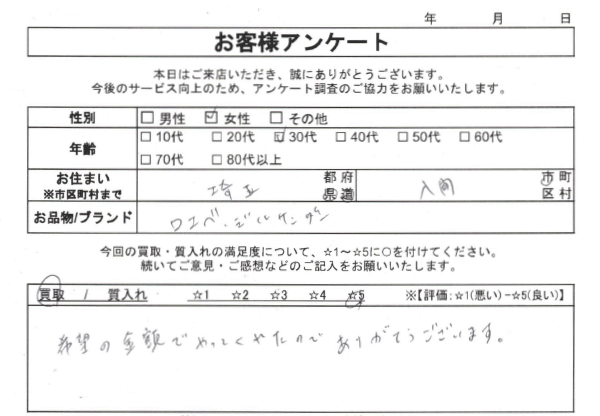 年 月 日
お客様アンケート
本日はご来店いただき、誠にありがとうございます。
今後のサービス向上のため、アンケート調査のご協力をお願いいたします。
性別 □ 男性 ☑ 女性 □ その他
年齢 □ 10代 □ 20代 ☑ 30代 □ 40代 □ 50代 □ 60代
□ 70代 □ 80代以上
お住まい ※市区町村まで 埼玉 都府県道 入間 市町区村
お品物/ブランド ロエベ・ジルサンダー
今回の買取・質入れの満足度について、☆1～☆5に○を付けてください。
続いてご意見・ご感想などのご記入をお願いいたします。
買取 / 質入れ ☆1 ☆2 ☆3 ☆4 ☆5 ※【評価:☆1(悪い)-☆5(良い)】
希望の金額でやってくれたので ありがとうございます。